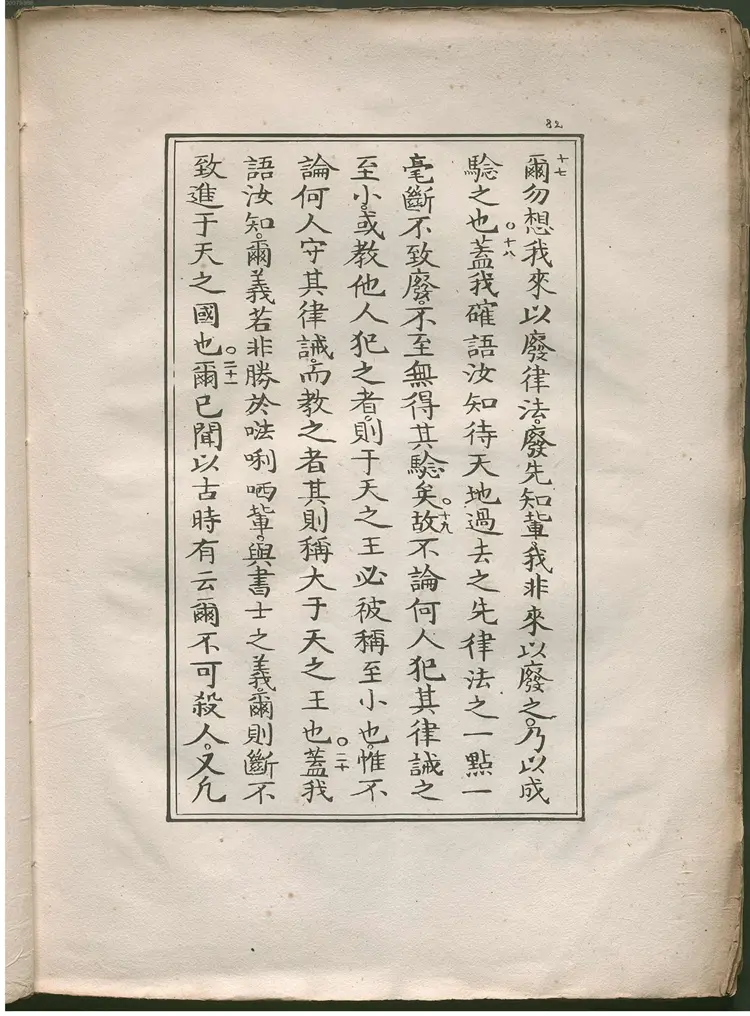 82
十七爾勿想我來以廢律法。廢先知輩。我非來以廢之。乃以成
騐之也。十八蓋我確語汝知待天地過去之先律法之一點一
毫斷不致廢。不至無得其騐矣。十九故不論何人犯其律誡之
至小。或教他人犯之者。則于天之王必被稱至小也。惟不
論何人守其律誡。而教之者其則稱大于天之王也。二十蓋我
語汝知。爾義若非勝於𠵽唎哂輩。與書士之義。爾則斷不
致進于天之國也。二十一爾已聞以古時有云爾不可殺人。又凢